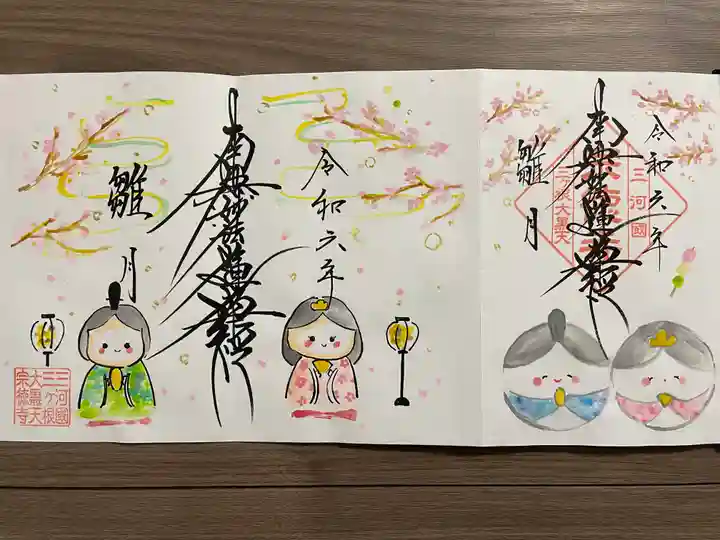 令和六年
南無妙法蓮華経
雛月
三河國
三ヶ根
大黒天
宗徳寺
令和六年
南無妙法蓮華経
雛月
三河國
三ヶ根大黒天